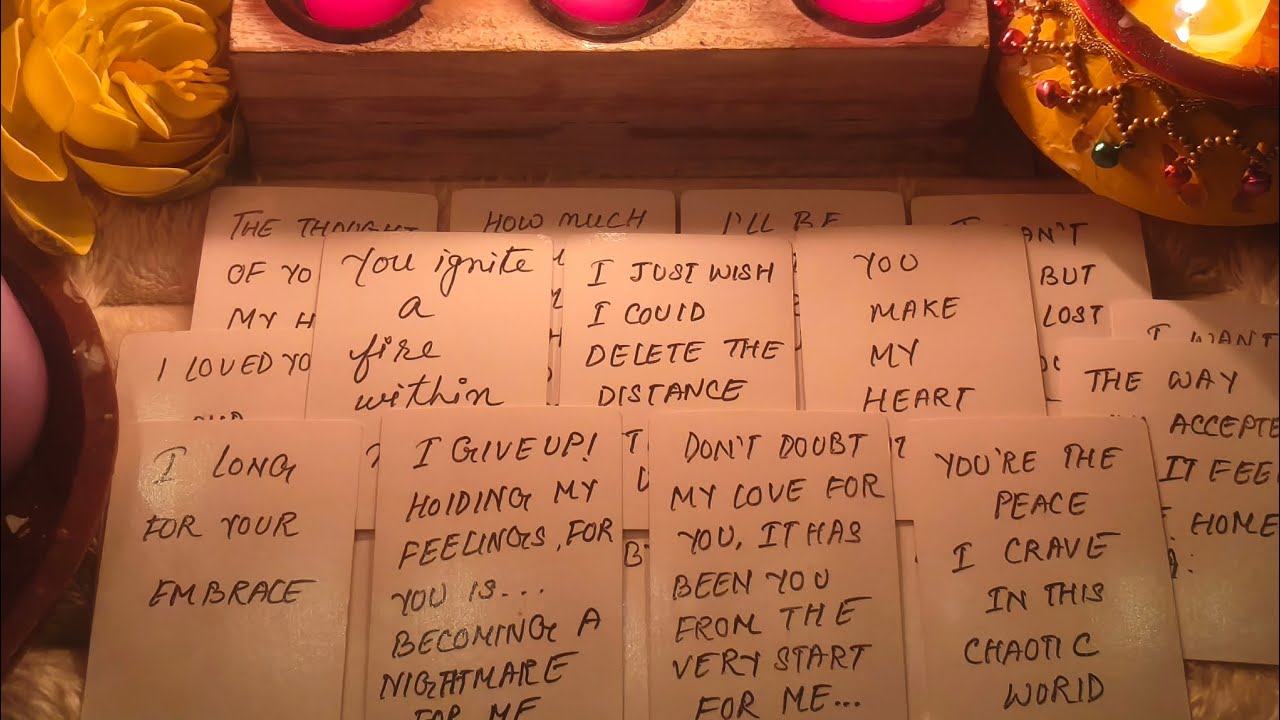 THE THOUGHT
OF YO
MY H
HOW MUCH
I'LL BE
AN'T
BUT
LOST
I LOVED YO
You ignite
a
fire
within
I JUST WISH
I COULD
DELETE THE
DISTANCE
YOU
MAKE
MY
HEART
I WANT
THE WAY
ACCEPTE
IT FEE
HOME
I LONG
FOR YOUR
EMBRACE
I GIVE UP!
HOLDING MY
FEELINGS, FOR
YOU IS...
BECOMING A
NIGHTMARE
FOR ME
DON'T DOUBT
MY LOVE FOR
YOU, IT HAS
BEEN YOU
FROM THE
VERY START
FOR ME...
YOU'RE THE
PEACE
I CRAVE
IN THIS
CHAOTIC
WORLD